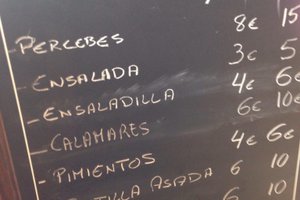 PERCEBES 8€ 15
- ENSALADA 3€ 5
- ENSALADILLA 4€ 6€
- CALAMARES 6€ 10€
- PIMIENTOS 4€ 6€
ASADA 6 10
6 10